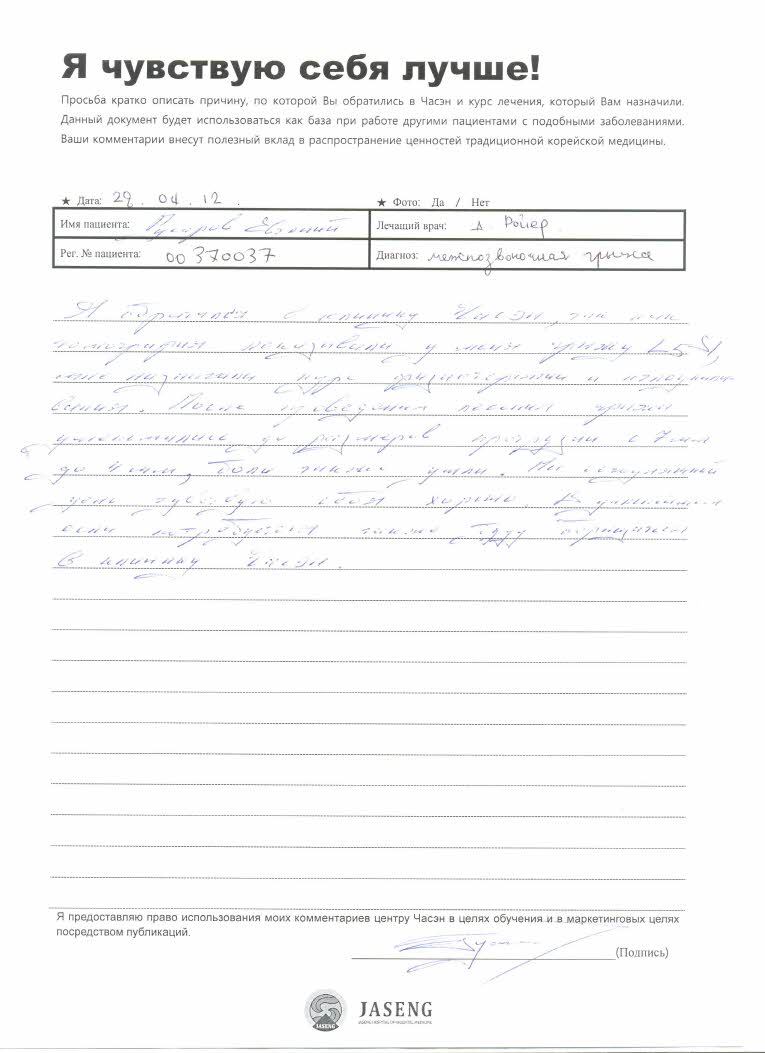 Я чувствую себя лучше!
Просьба кратко описать причину, по которой Вы обратились в Часэн и курс лечения, который Вам назначили.
Данный документ будет использоваться как база при работе другими пациентами с подобными заболеваниями.
Ваши комментарии внесут полезный вклад в распространение ценностей традиционной корейской медицины.
★ Дата: 29 . 04 . 12 .
★ Фото: Да / Нет
Имя пациента: Евгений
Лечащий врач: Д. Ройер
Рег. № пациента: 00370037
Диагноз: межпозвоночная грыжа
Я обратился в клинику Часэн, так как
томография показывали у меня грыжу L5-S1,
мне назначили курс физиотерапии и иглоукалы-
вания. После проведения лечения грыжа
уменьшилась до размеров протрузии с 7 мм
до 4 мм, боли также ушли. На сегодняшний
день чувствую себя хорошо. В дальнейшем
если потребуется также буду обращаться
в клинику Часэн.
Я предоставляю право использования моих комментариев центру Часэн в целях обучения и в маркетинговых целях
посредством публикаций.
(Подпись)
JASENG
JASENG HOSPITAL OF ORIENTAL MEDICINE